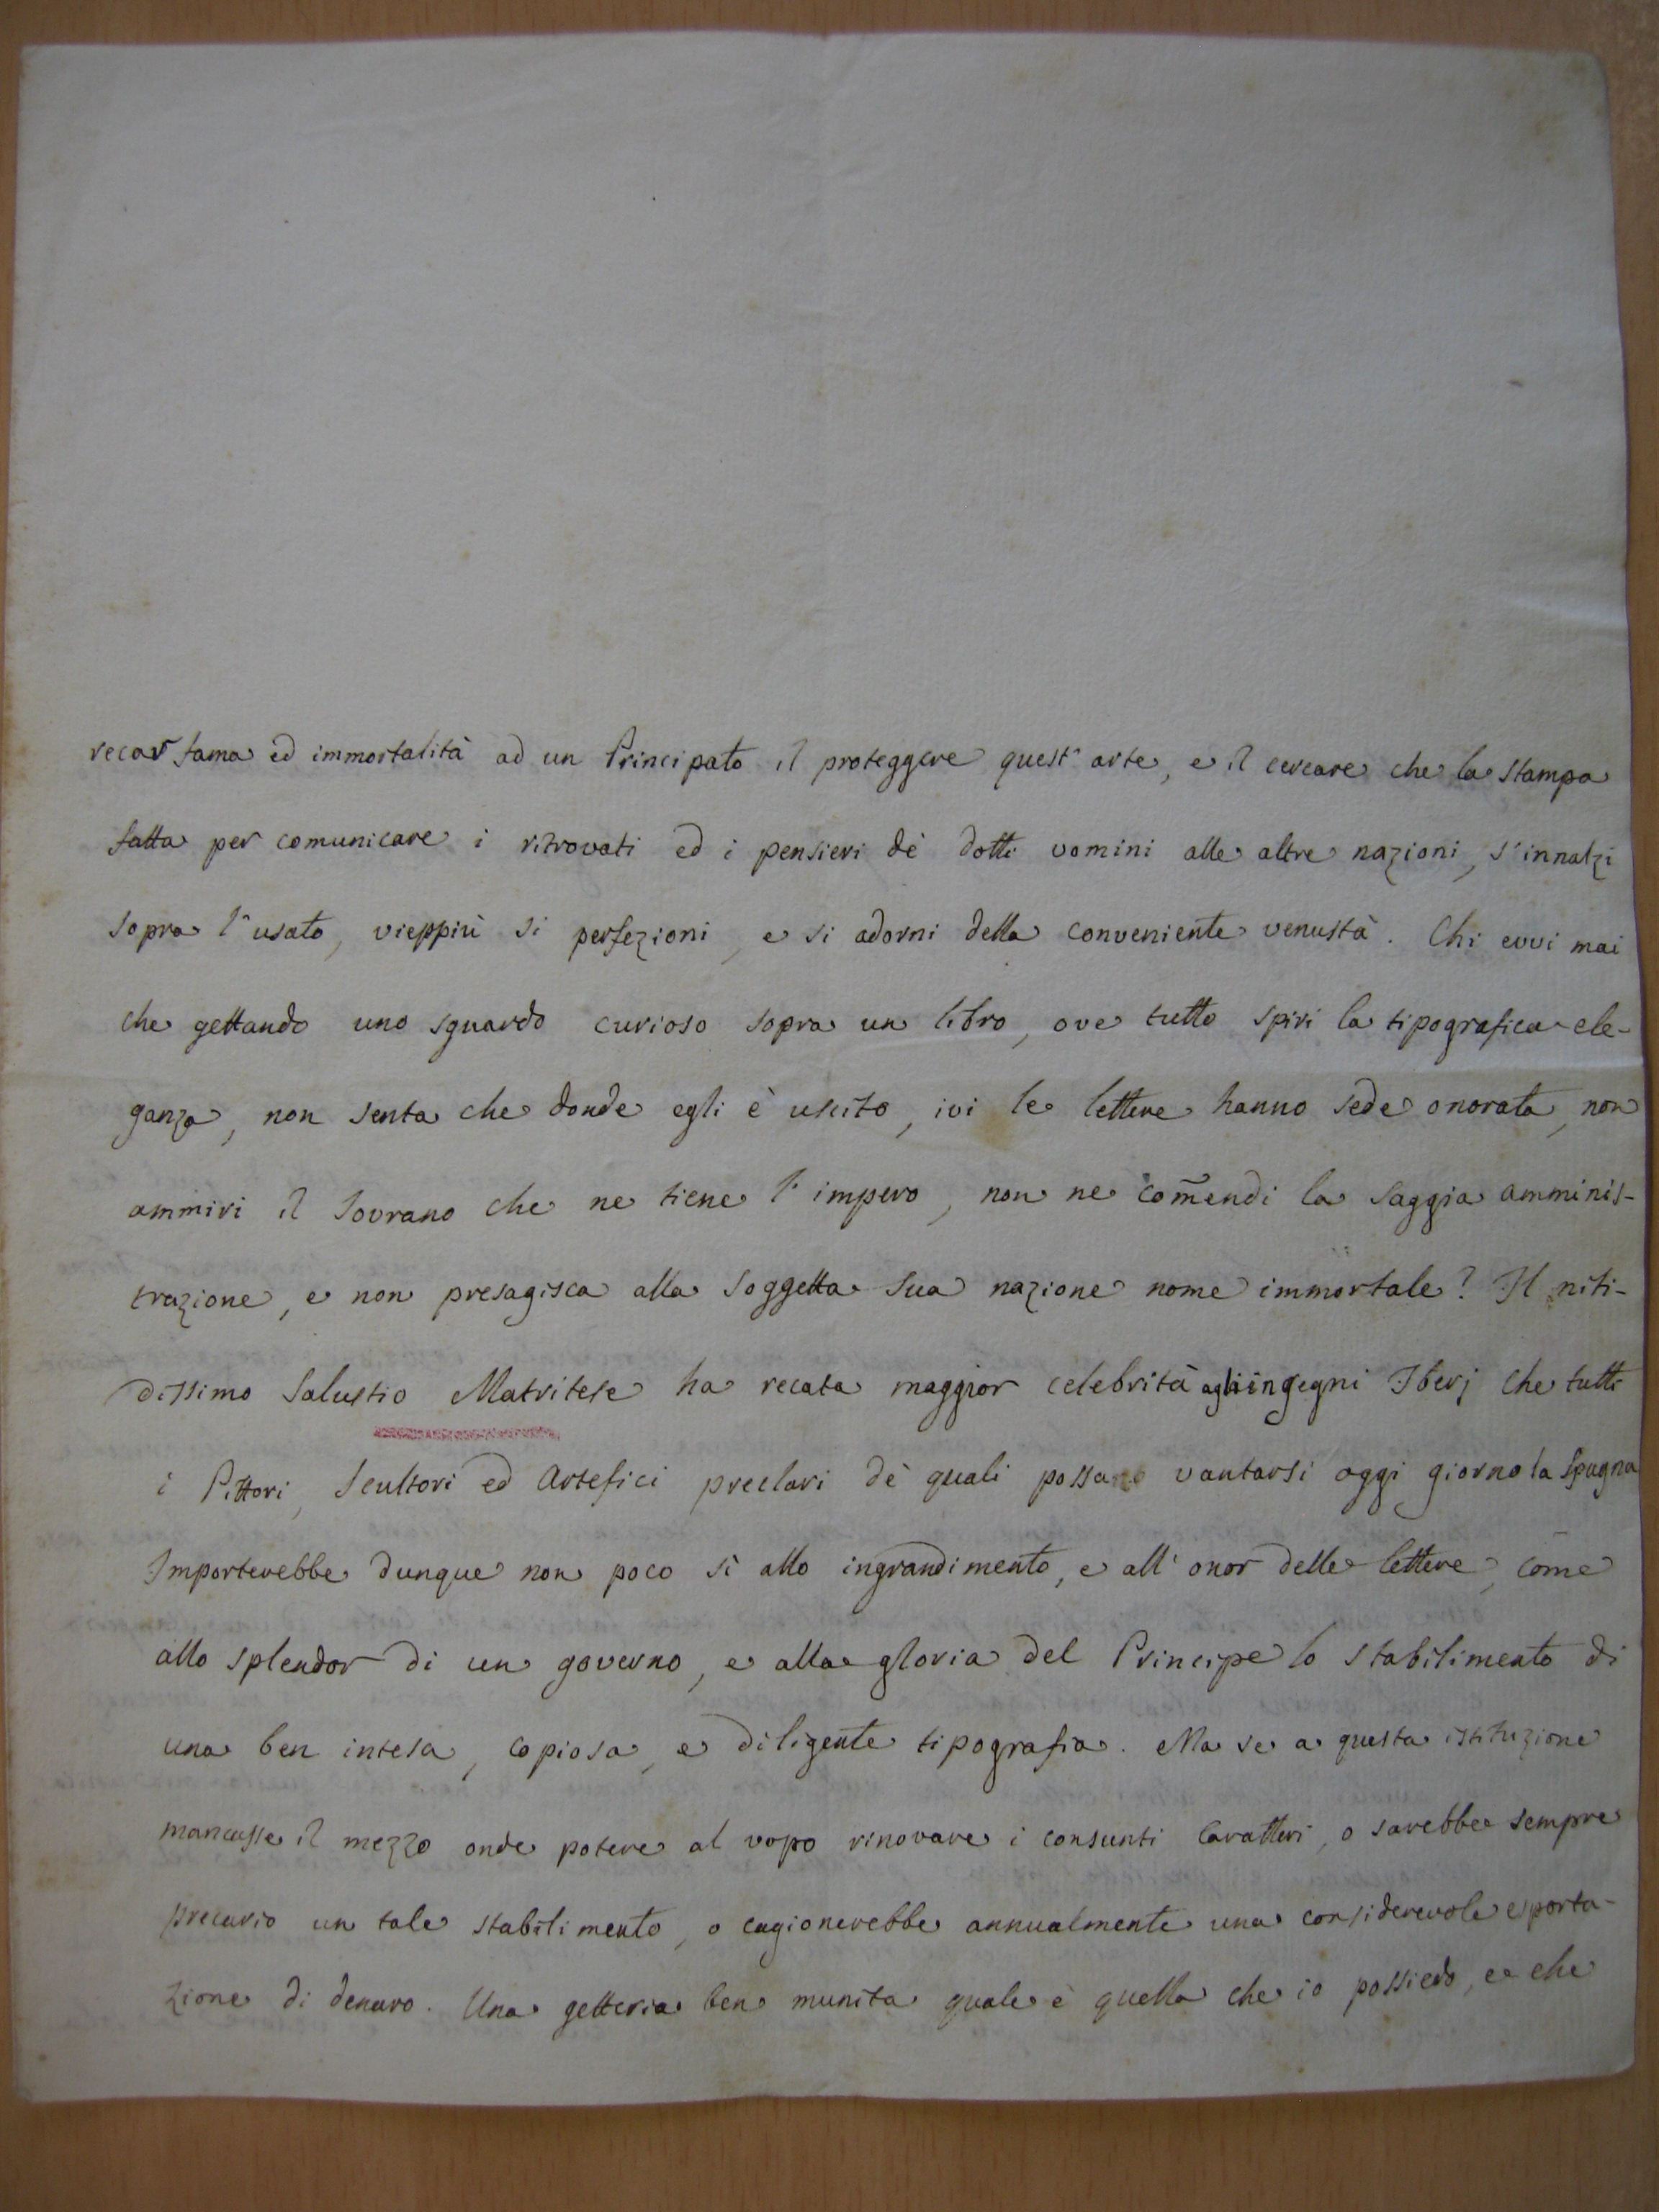 recar fama ed immortalità ad un Principato il proteggere quest'arte, e il cercare che la stampa
fatta per comunicare i ritrovati ed i pensieri dè dotti uomini alle altre nazioni, s'innalzi
sopra l'usato, vieppiù si perfezioni, e si adorni della conveniente venustà. Chi evvi mai
che gettando uno sguardo curioso sopra un libro, ove tutto spiri la tipografica ele-
ganza, non senta che donde egli è uscito, ivi le lettere hanno sede onorata, non
ammiri il Sovrano che ne tiene l'impero, non ne com̃endi la saggia amminis-
trazione, e non presagisca alla soggetta sua nazione nome immortale? Il niti-
dissimo Salustio Matritese ha recata maggior celebrità agli ingegni Iberj che tutti
i Pittori, Scultori ed Artefici preclari dè quali possano vantarsi oggi giorno la Spagna
Importerebbe dunque non poco sì allo ingrandimento, e all'onor delle lettere, come
allo splendor di un governo, e alla gloria del Principe lo stabilimento di
una ben intesa, copiosa, e diligente tipografia. Ma se a questa istituzione
mancasse il mezzo onde potere al uopo rinovare i consunti Caratteri, o sarebbe sempre
precario un tale stabilimento, o cagionerebbe annualmente una considerevole esporta-
zione di denaro. Una getteria ben munita quale è quella che io possiedo, e che